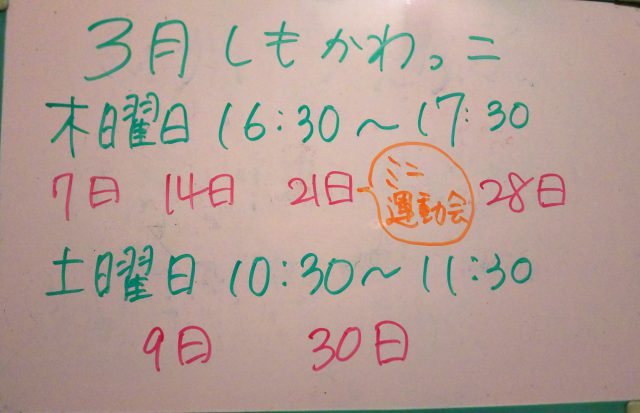 3月しもかわっ二
木曜日 16:30～17:30
7日 14日 21日 ミニ 28日
運動会
土曜日 10:30～11:30
9日 30日